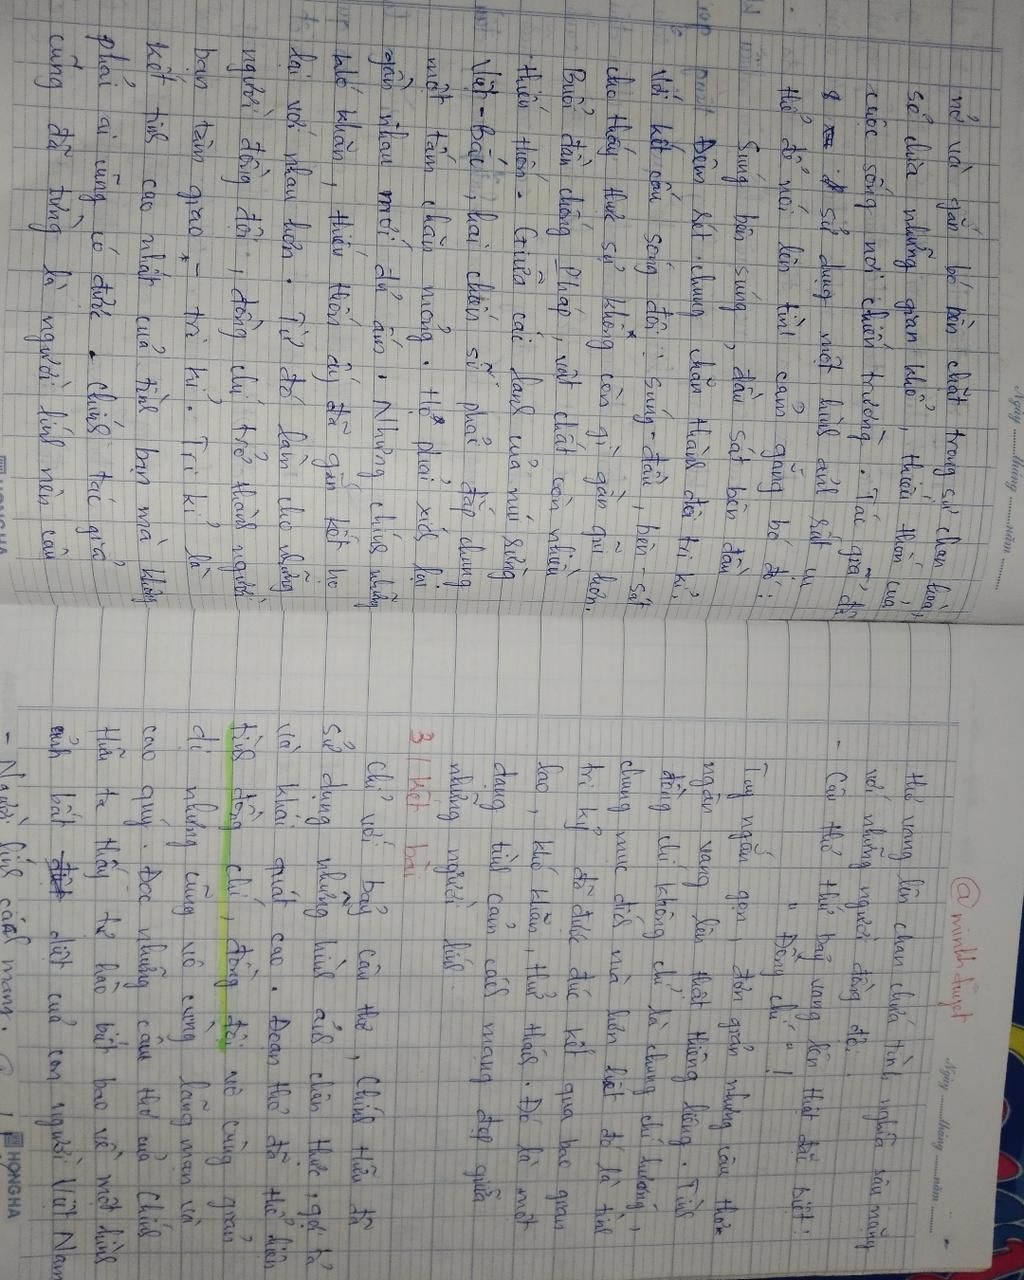 Ngày ........ tháng ........ năm ........
nở và gắn bó bản chất trong sự chan hoà, chia
sẻ chia những gian khổ, thiếu thốn của
cuộc sống nơi chiến trường. Tác giả đã
sử dụng một hình ảnh rất cụ
thể để nói lên tình cảm gắng bó đó:
Súng bên súng, đầu sát bên đầu
Đêm rét chung chăn thành đôi tri kỉ.
Với kết cấu song đôi: súng - đầu, bên - sát
cho thấy thực sự không còn gì gần gũi hơn.
Buổi đầu chống Pháp, vật chất còn nhiều
thiếu thốn. Giữa cái lạnh của núi rừng
Việt - Bắc, hai chiến sĩ phải đắp chung
một tấm chăn mỏng. Họ phải xích lại
gần nhau mới đủ ấm. Những chính những
khó khăn, thiếu thốn ấy đã gắn kết họ
lại với nhau hơn. Từ đó làm cho những
người đồng đội, đồng chí trở thành người
bạn tâm giao - tri kỉ. Tri kỉ là
kết tinh cao nhất của tình bạn mà không
phải ai cũng có được. Chính tác giả
cũng đã từng là người lính nên câu
HONGHA
@minhh.tuyet
Ngày ........ tháng ........ năm ........
thơ vang lên chan chứa tình nghĩa sâu nặng
với những người đồng đội.
- Câu thơ thứ bảy vang lên thật đặc biệt:
" Đồng chí " !
Tuy ngắn gọn, đơn giản nhưng câu thơ
ngân vang lên thật thiêng liêng. Tình
đồng chí không chỉ là chung chí hướng,
chung mục đích mà hơn hết đó là tình
tri kỷ đã được đúc kết qua bao gian
lao, khó khăn, thử thách. Đó là một
dạng tình cảm cách mạng đẹp giữa
những người lính.
3/ Kết bài
Chỉ với bảy câu thơ, Chính Hữu đã
sử dụng những hình ảnh chân thực, gợi tả
và khái quát cao. Đoạn thơ đã thể hiện
tình đồng chí, đồng đội vô cùng giản
dị nhưng cũng vô cùng lãng mạn và
cao quý. Đọc những câu thơ của Chính
Hữu ta thấy tự hào biết bao về một hình
ảnh bất diệt của con người Việt Nam
- Người lính cách mạng.
HONGHA